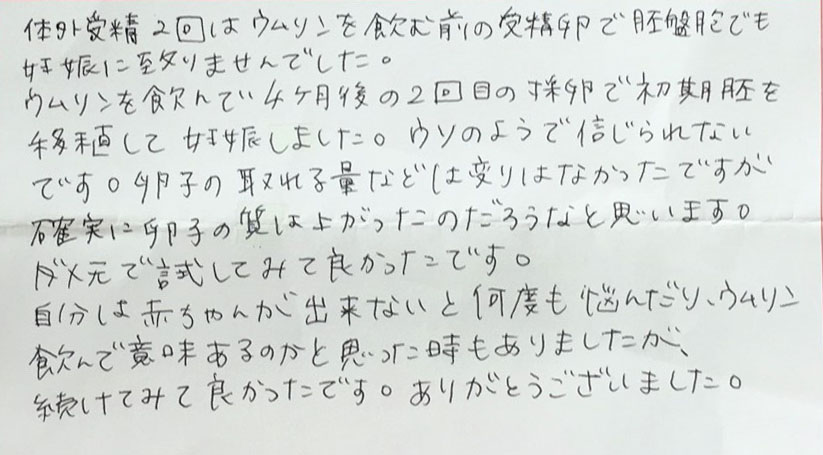 体外受精2回はウムリンを飲む前の受精卵で胚盤胞でも
妊娠に至りませんでした。
ウムリンを飲んで4ケ月後の2回目の採卵で初期胚を
移植して妊娠しました。ウソのようで信じられない
です。卵子の取れる量などは変りはなかったですが
確実に卵子の質は上がったのだろうなと思います。
ダメ元で試してみて良かったです。
自分は赤ちゃんが出来ないと何度も悩んだり、ウムリン
飲んで意味あるのかと思った時もありましたが、
続けてみて良かったです。ありがとうございました。